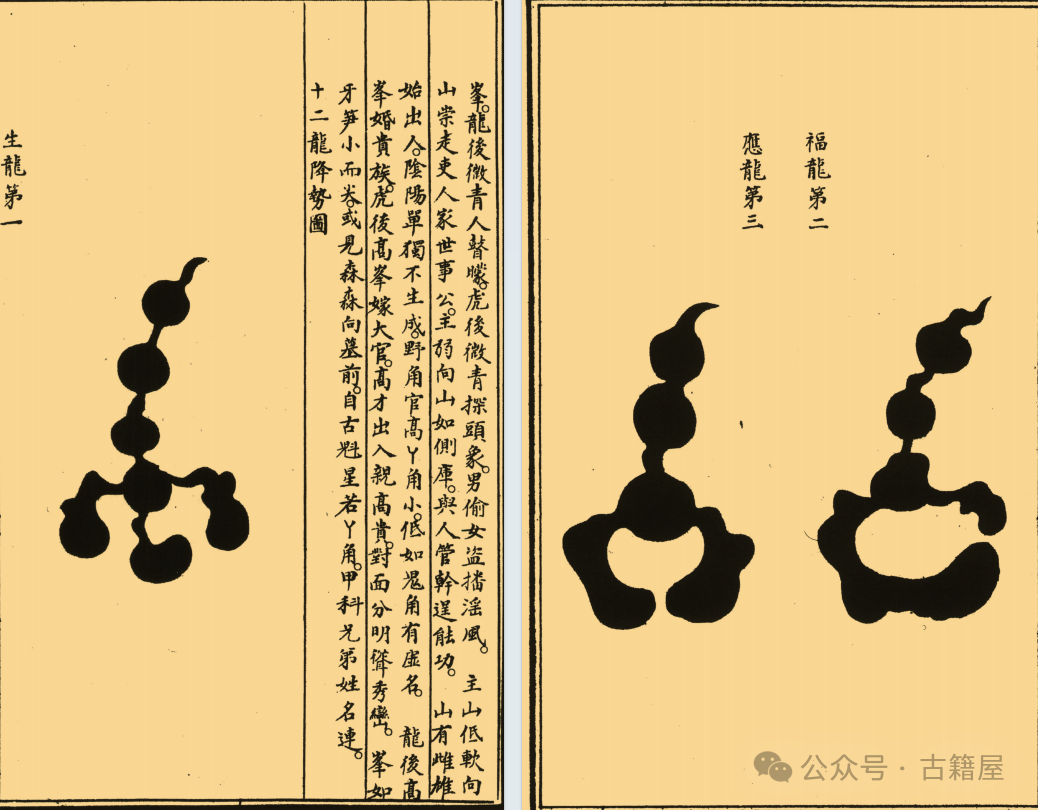 峯。龍後微青人瞽矇。虎後微青探頭象。男偷女盜播滛風。 主山低軟向
山崇走吏人家世事公。主弱向山如側庫。與人管幹逞䏻功。 山有雌雄
始出人。陰陽單獨不生成。野角官高丫角小。低如鬼角有虛名。 龍後高
峯婚貴族。虎後高峯嫁大官。高才出入親高貴。對面分明聳秀巒。 峯如
牙笋小而尖。或見森森向墓前。自古魁星若丫角。甲科兄弟姓名連。
十二龍降勢圖
生龍第一
福龍第二
應龍第三
公众号 · 古籍屋